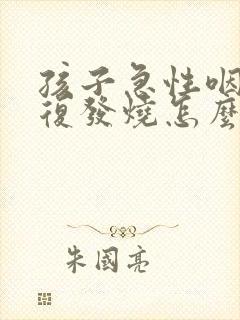 孩子急性咽
復發燒怎麼
朱國亮